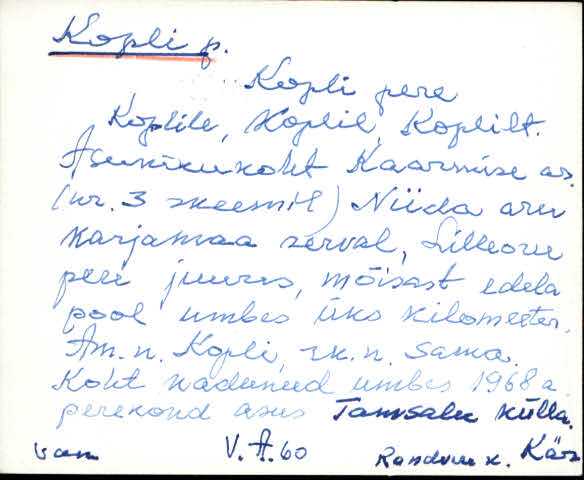 Kopli p.
Kopli pere
Koplile, Koplil, Koplilt.
Asunikukoht Kaarmise as.
(nr. 3 skeemil) Niida aru
karjamaa serval, Lilleoru
pere juures, mõisast edela
pool umbes üks kilomeeter.
Am. n. Kopli, rk. n. sama.
Koht kadunud umbes 1968 a
perekond asus Tamsalu külla.
V. A. 60 Randvere k. Kär